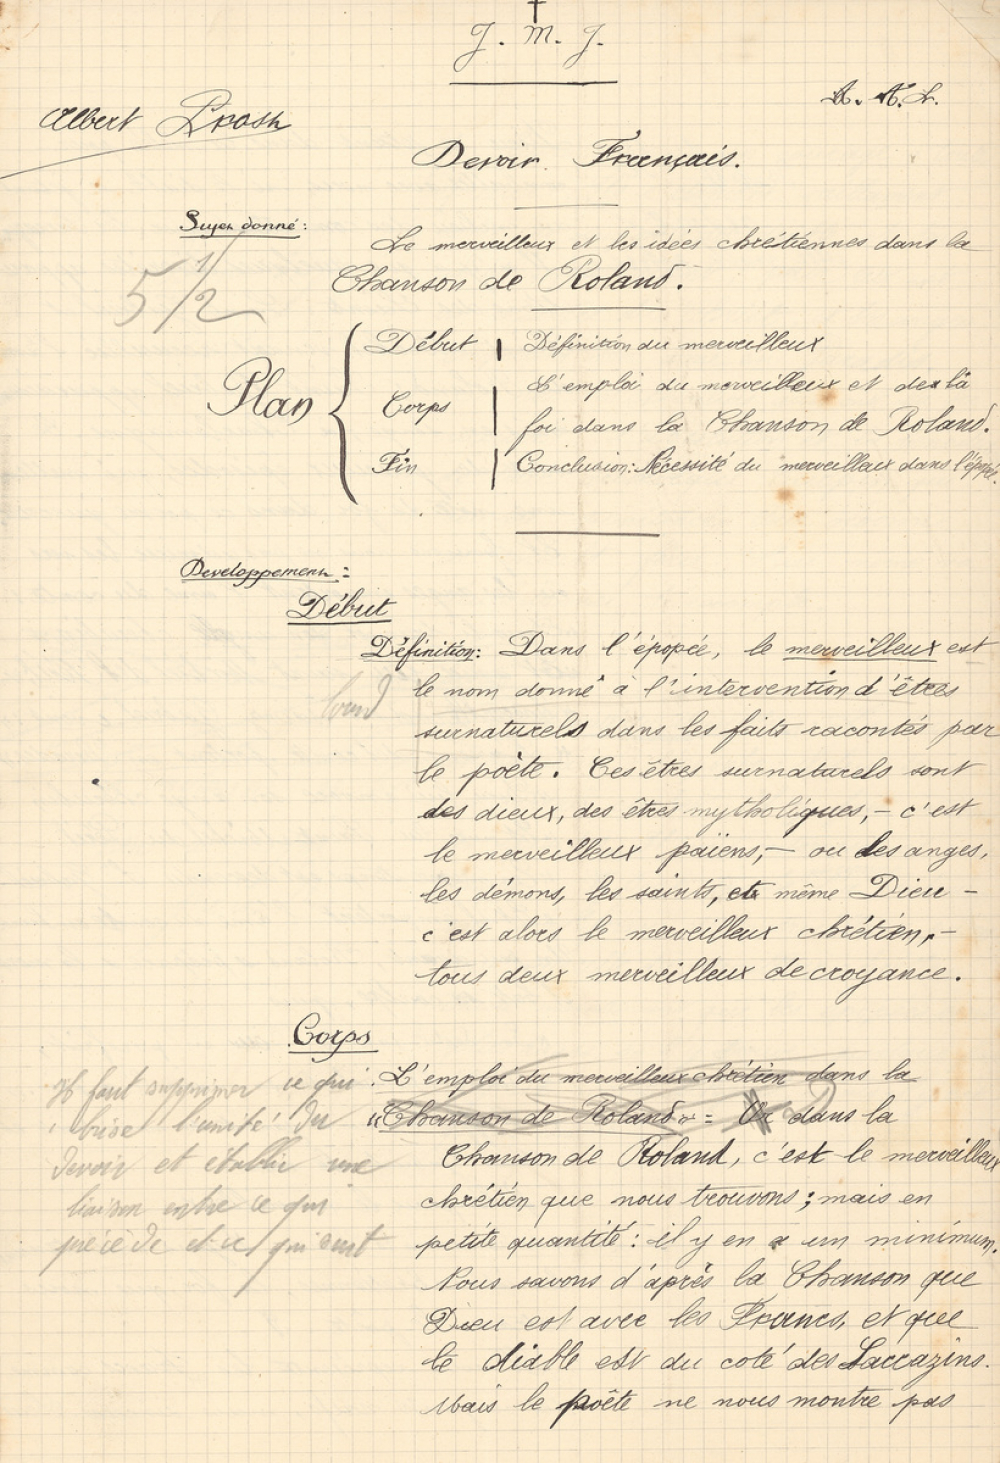 J. M. J.
A. A. L.
Albert
Devoir Français.
Sujet donné:
Le merveilleux et les idées chrétiennes dans la
Chanson de Roland.
5 1/2
Plan
Début | Définition du merveilleux
Corps | L'emploi du merveilleux et de la
foi dans la Chanson de Roland.
Fin | Conclusion: Nécessité du merveilleux dans l'épopée.
Developpement:
Début
Définition: Dans l'épopée, le merveilleux est
lourd
le nom donné à l'intervention d'êtres
surnaturels dans les faits racontés par
le poète. Ces êtres surnaturels sont
des dieux, des êtres mythologiques, – c'est
le merveilleux païens, – ou des anges,
les démons, les saints, et même Dieu –
c'est alors le merveilleux chrétien, –
tous deux merveilleux de croyance.
Corps
L'emploi du merveilleux chrétien dans la
"Chanson de Roland" = Or dans la
Chanson de Roland, c'est le merveilleux
chrétien que nous trouvons; mais en
petite quantité: il y en a un minimum.
Nous savons d'après la Chanson que
Dieu est avec les Francs, et que
le diable est du coté des Sarrazins.
Mais le poête ne nous montre pas
Il faut supprimer ce qui
brise l'unité du
devoir et établir une
liaison entre ce qui
précède et ce qui suit